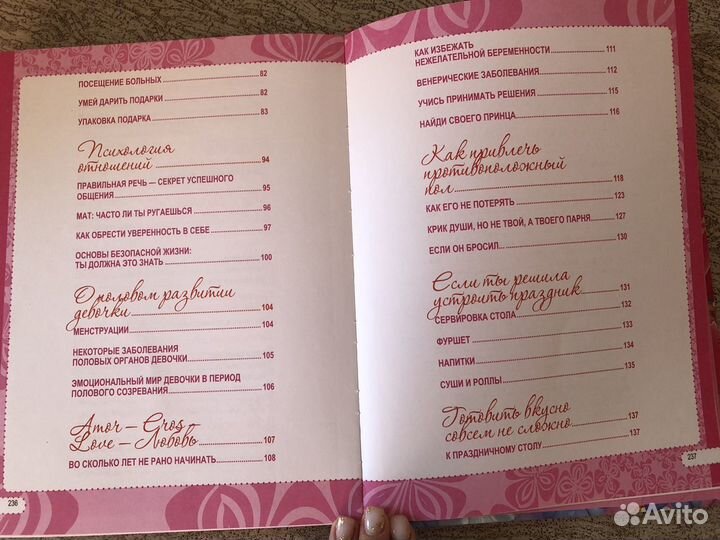 ПОСЕЩЕНИЕ БОЛЬНЫХ 82
УМЕЙ ДАРИТЬ ПОДАРКИ 82
УПАКОВКА ПОДАРКА 83
Психология
отношений 94
ПРАВИЛЬНАЯ РЕЧЬ — СЕКРЕТ УСПЕШНОГО
ОБЩЕНИЯ 95
МАТ: ЧАСТО ЛИ ТЫ РУГАЕШЬСЯ 96
КАК ОБРЕСТИ УВЕРЕННОСТЬ В СЕБЕ 97
ОСНОВЫ БЕЗОПАСНОЙ ЖИЗНИ:
ТЫ ДОЛЖНА ЭТО ЗНАТЬ 100
О половом развитии
девочки 104
МЕНСТРУАЦИИ 104
НЕКОТОРЫЕ ЗАБОЛЕВАНИЯ
ПОЛОВЫХ ОРГАНОВ ДЕВОЧКИ 105
ЭМОЦИОНАЛЬНЫЙ МИР ДЕВОЧКИ В ПЕРИОД
ПОЛОВОГО СОЗРЕВАНИЯ 106
Amor – Eros
Love – Любовь 107
ВО СКОЛЬКО ЛЕТ НЕ РАНО НАЧИНАТЬ 108
236
КАК ИЗБЕЖАТЬ
НЕЖЕЛАТЕЛЬНОЙ БЕРЕМЕННОСТИ 111
ВЕНЕРИЧЕСКИЕ ЗАБОЛЕВАНИЯ 112
УЧИСЬ ПРИНИМАТЬ РЕШЕНИЯ 115
НАЙДИ СВОЕГО ПРИНЦА 116
Как привлечь
противоположный
пол 118
КАК ЕГО НЕ ПОТЕРЯТЬ 123
КРИК ДУШИ, НО НЕ ТВОЙ, А ТВОЕГО ПАРНЯ 127
ЕСЛИ ОН БРОСИЛ... 130
Если ты решила
устроить праздник 131
СЕРВИРОВКА СТОЛА 132
ФУРШЕТ 133
НАПИТКИ 134
СУШИ И РОЛЛЫ 135
Готовить вкусно
совсем не сложно 137
К ПРАЗДНИЧНОМУ СТОЛУ 137
237
Avito